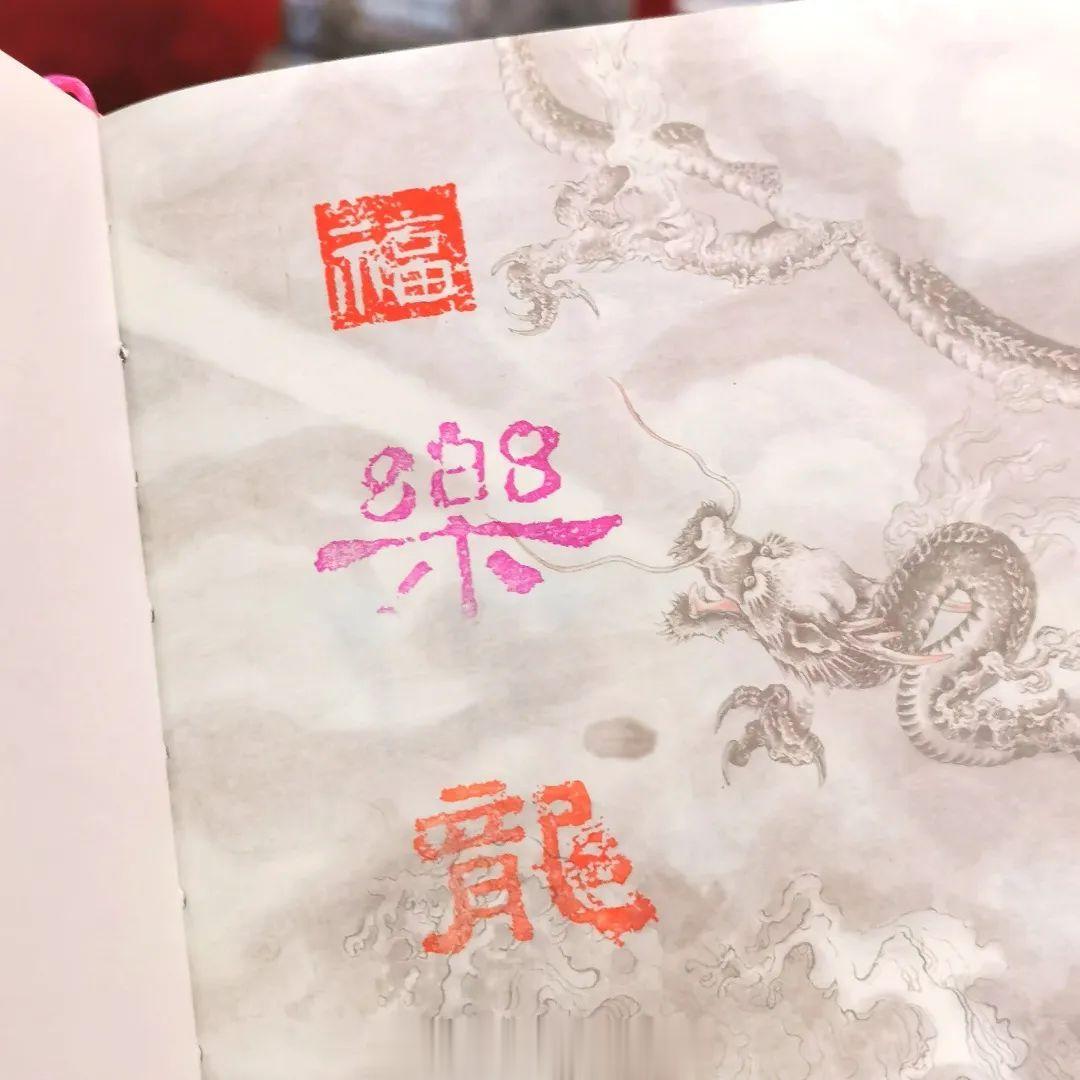 福
樂
龍